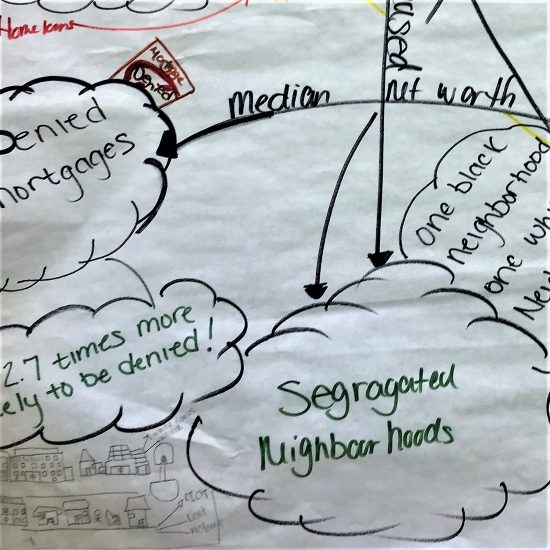 Home loans
Mortgage
Denied
used
median net worth
Denied
mortgages
One black
neighborhood
one whi
New
2.7 times more
ely to be denied!
Segragated
Neighbour hoods